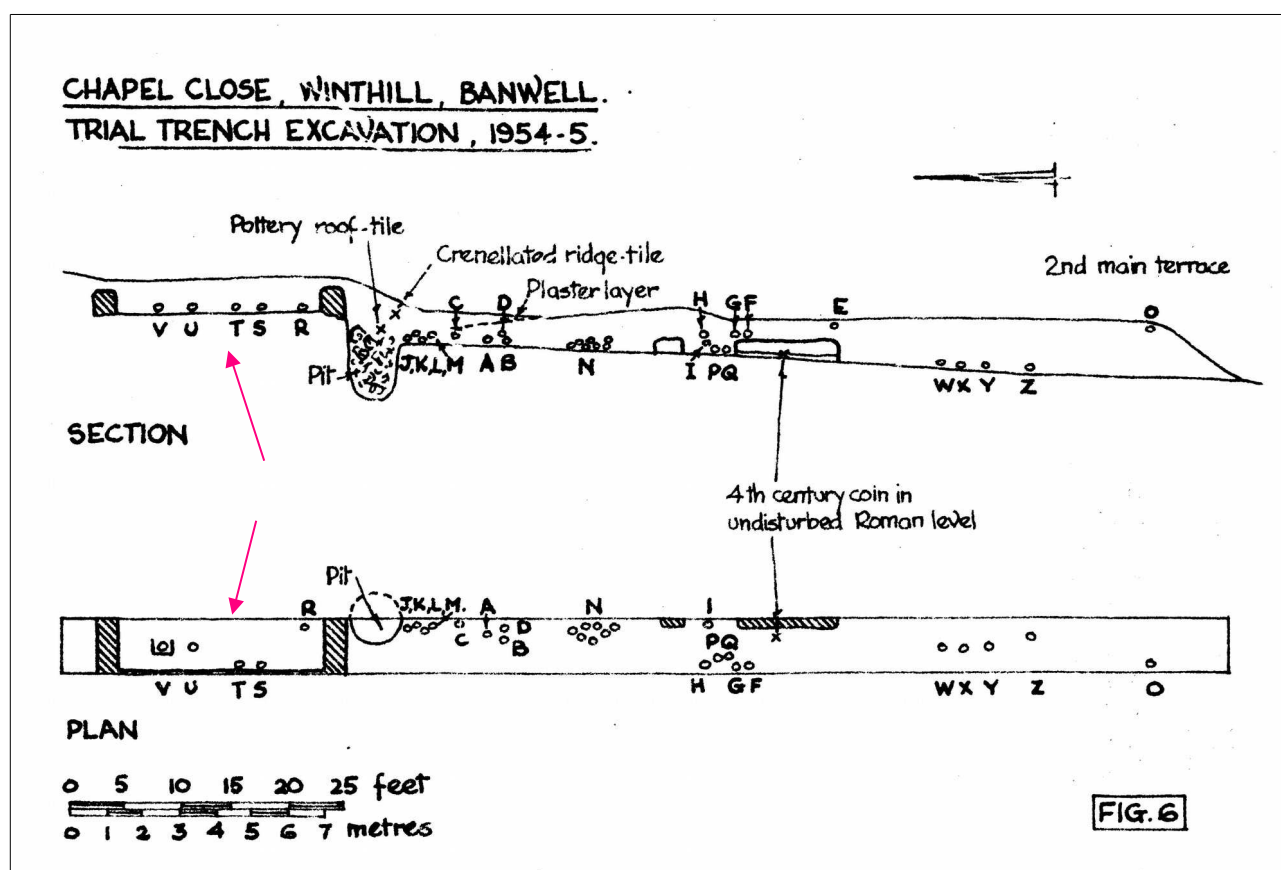 CHAPEL CLOSE, WINTHILL, BANWELL.
TRIAL TRENCH EXCAVATION, 1954-5.
Pottery roof-tile
Crenellated ridge-tile
Plaster layer
2nd main terrace
C D H G F E O
V U T S R
Pit
J,K,L,M A B N I P Q
W X Y Z
SECTION
4th century coin in
undisturbed Roman level
Pit
R J,K,L,M. A N I
C D B P Q
V U T S H G F W X Y Z O
PLAN
0 5 10 15 20 25 feet
0 1 2 3 4 5 6 7 metres
FIG. 6